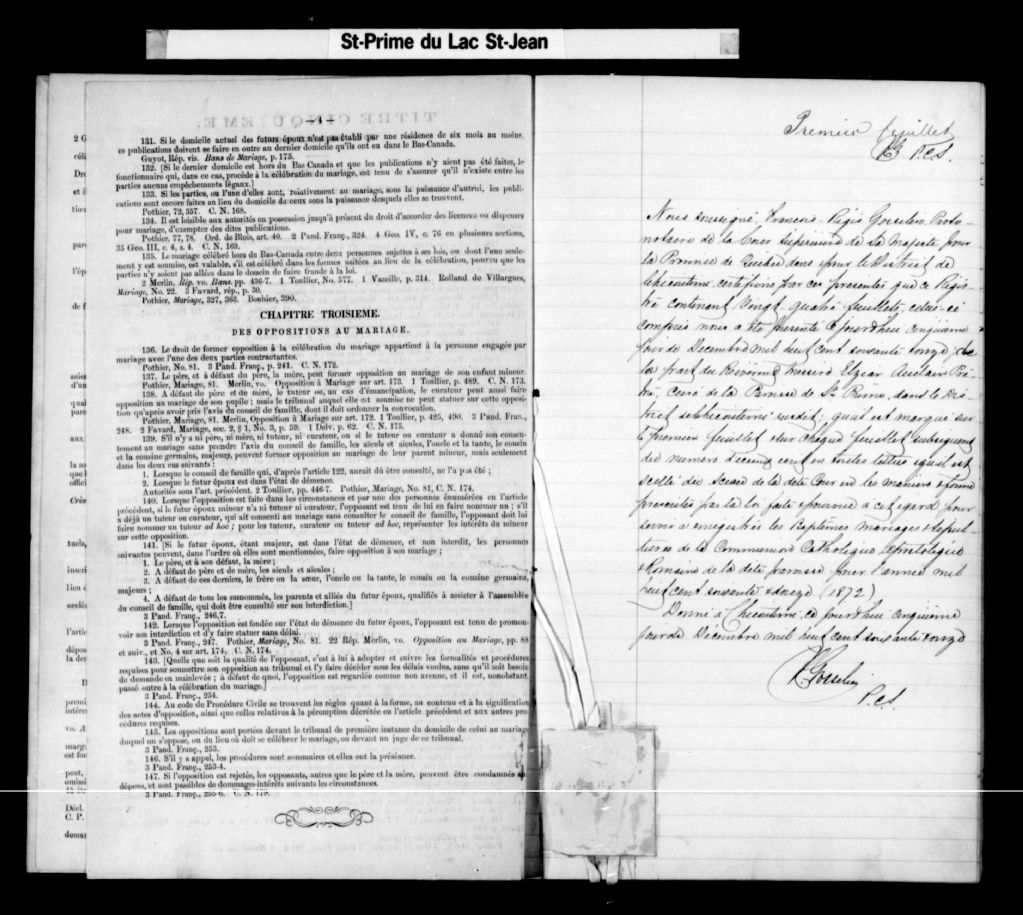 St-Prime du Lac St-Jean
131. Si le domicile actuel des futurs époux n'est pas établi par une résidence de six mois au moins,
es publications doivent se faire en outre au dernier domicile qu'ils ont eu dans le Bas-Canada.
Guyot, Rép. vis. Bans de Mariage, p. 175.
132. [Si le dernier domicile est hors du Bas-Canada et que les publications n'y aient pas été faites, le
fonctionnaire qui, dans ce cas, procède à la célébration du mariage, est tenu de s'assurer qu'il n'existe entre les
parties aucuns empêchements légaux.]
133. Si les parties, ou l'une d'elles sont, relativement au mariage, sous la puissance d'autrui, les publi-
cations sont encore faites au lieu du domicile de ceux sous la puissance desquels elles se trouvent.
Pothier, 72, 357. C. N. 168.
134. Il est loisible aux autorités en possession jusqu'à présent du droit d'accorder des licences ou dispenses
pour mariage, d'exempter des dites publications.
Pothier, 77, 78. Ord. de Blois, art. 40. 2 Pand. Franç., 324. 4 Geo. IV, c. 76 en plusieurs sections,
35 Geo. III, c. 4, s. 4. C. N. 169.
135. Le mariage célébré hors du Bas-Canada entre deux personnes sujettes à ses lois, ou dont l'une seule-
ment y est soumise, est valable, s'il est célébré dans les formes usitées au lieu de la célébration, pourvu que les
parties n'y soient pas allées dans le dessein de faire fraude à la loi.
2 Merlin, Rép. vo. Bans. pp. 436-7. 1 Toullier, No. 577. 1 Vazeille, p. 314. Rolland de Villargues,
Mariage, No. 22. 3 Favard, rép., p. 30.
Pothier, Mariage, 327, 363. Bouhier, 390.
CHAPITRE TROISIEME.
DES OPPOSITIONS AU MARIAGE.
136. Le droit de former opposition à la célébration du mariage appartient à la personne engagée par
mariage avec l'une des deux parties contractantes.
Pothier, No. 81. 3 Pand. Franç., p. 241. C. N. 172.
137. Le père, et à défaut du père, la mère, peut former opposition au mariage de son enfant mineur.
Pothier, Mariage, 81. Merlin, vo. Opposition à Mariage sur art. 173. 1 Toullier, p. 489. C. N. 173.
138. A défaut de père et de mère, le tuteur, ou, au cas d'émancipation, le curateur peut aussi faire
opposition au mariage de son pupille; mais le tribunal auquel elle est soumise ne peut statuer sur cette opposi-
tion qu'après avoir pris l'avis du conseil de famille, dont il doit ordonner la convocation.
Pothier, Mariage, 81. Merlin, Opposition à Mariage sur art. 172. 1 Toullier, p. 425, 490. 3 Pand. Fran.,
248. 2 Favard, Mariage, sec. 2, § 1, No. 3, p. 59. 1 Delv. p. 62. C. N. 175.
139. S'il n'y a ni père, ni mère, ni tuteur, ni curateur, ou si le tuteur ou curateur a donné son consen-
tement au mariage sans prendre l'avis du conseil de famille, les aïeuls et aïeules, l'oncle et la tante, le cousin
et la cousine germains, majeurs, peuvent former opposition au mariage de leur parent mineur, mais seulement
dans les deux cas suivants:
1. Lorsque le conseil de famille qui, d'après l'article 122, aurait dû être consulté, ne l'a pas été;
2. Lorsque le futur époux est dans l'état de démence.
Autorités sous l'art. précédent. 2 Toullier, pp. 446-7. Pothier, Mariage, No. 81, C. N. 174.
140. Lorsque l'opposition est faite dans les circonstances et par une des personnes énumérées en l'article
précédent, si le futur époux mineur n'a ni tuteur ni curateur, l'opposant est tenu de lui en faire nommer un; s'il
a déjà un tuteur ou curateur, qui ait consenti au mariage sans consulter le conseil de famille, l'opposant doit lui
faire nommer un tuteur ad hoc; pour les tuteur, curateur ou tuteur ad hoc, représenter les intérêts du mineur
sur cette opposition.
141. [Si le futur époux, étant majeur, est dans l'état de démence, et non interdit, les personnes
suivantes peuvent, dans l'ordre où elles sont mentionnées, faire opposition à son mariage;
1. Le père, et à son défaut, la mère;
2. A défaut de père et de mère, les aïeuls et aïeules;
3. A défaut de ces derniers, le frère ou la sœur, l'oncle ou la tante, le cousin ou la cousine germains,
majeurs;
4. A défaut de tous les susnommés, les parents et alliés du futur époux, qualifiés à assister à l'assemblée
du conseil de famille, qui doit être consulté sur son interdiction.]
3 Pand. Franç., 246,7.
142. Lorsque l'opposition est fondée sur l'état de démence du futur époux, l'opposant est tenu de promou-
voir son interdiction et d'y faire statuer sans délai.
3 Pand. Franç., 247. Pothier, Mariage, No. 81. 22 Rép. Merlin, vo. Opposition au Mariage, pp. 88
et suiv., et No. 4 sur art. 174, C. N. 174.
143. [Quelle que soit la qualité de l'opposant, c'est à lui à adopter et suivre les formalités et procédures
requises pour soumettre son opposition au tribunal et l'y faire décider sous les délais voulus, sans qu'il soit besoin
de demande en mainlevée; à défaut de quoi, l'opposition est regardée comme non avenue, et il est, nonobstant,
passé outre à la célébration du mariage.]
3 Pand. Franç., 254.
144. Au code de Procédure Civile se trouvent les règles quant à la forme, au contenu et à la signification
des actes d'opposition, ainsi que celles relatives à la péremption décrétée en l'article précédent et aux autres pro-
cédures requises.
145. Les oppositions sont portées devant le tribunal de première instance du domicile de celui au mariage
duquel on s'oppose, ou du lieu où doit se célébrer le mariage, ou devant un juge de ce tribunal.
3 Pand. Franç., 253.
146. S'il y a appel, les procédures sont sommaires et elles ont la préséance.
3 Pand. Franç., 253-4.
147. Si l'opposition est rejetée, les opposants, autres que le père et la mère, peuvent être condamnés au
dépens, et sont passibles de dommages-intérêts suivants les circonstances.
3 Pand. Franç., 255-6. C. N. 179.
Premier feuillet
P.C.S.
Nous soussigné, Francois-Régis Gosselin, Proto-
notaire de la Cour Supérieure de Sa Majesté pour
la Province de Québec dans et pour le District de
Chicoutimi, certifions par ces présentes que ce Régis-
tre contenant Vingt quatre feuillets, celui-ci
compris nous a été présenté ce jourd'hui cinquième
jour de Décembre mil huit cent soixante et onze, de
la part du Révérend messire Elzéar Auclair Prê-
tre, Curé de la Paroisse de St. Prime, dans le Dis-
trict de Chicoutimi susdit; qu'il est marqué sur
le premier feuillet et sur chaque feuillet subséquent
du numéro d'icelui écrit en toutes lettres et qu'il est
scellé du Sceau de la dite Cour en la manière et forme
prescrites par la loi faite et pourvue à cet égard pour
servir à enregistrer les Baptêmes Mariages et Sépul-
tures de la Communion Catholique Apostolique
et Romaine de la dite paroisse pour l'année mil
huit cent soixante et douze (1872)
Donné à Chicoutimi, ce jourd'hui cinquième
jour de Décembre mil huit cent soixante et onze
Gosselin
P.C.S.